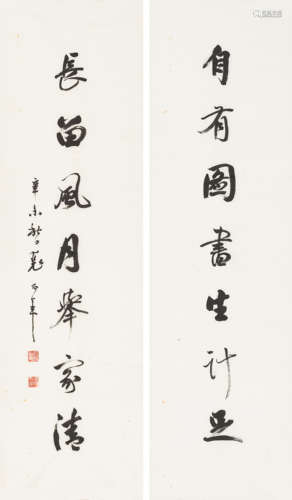 自有圖書生計足
長留風月舉家清
辛未秋